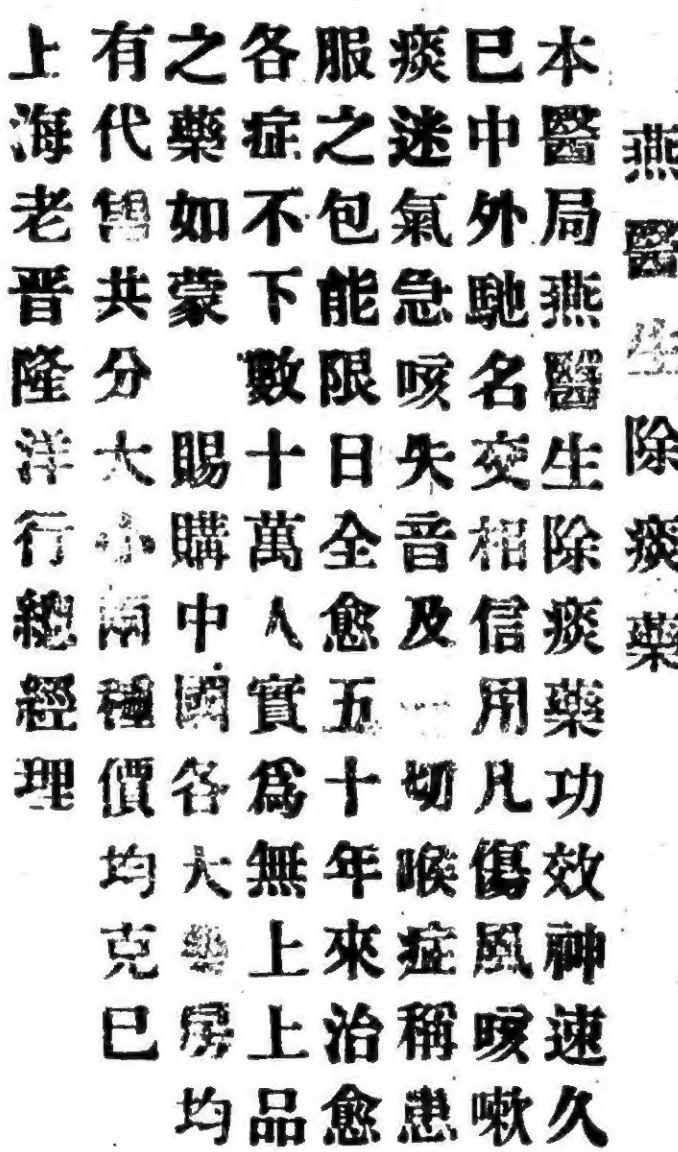 燕醫生除痰藥
本醫局燕醫生除痰藥功效神速久
已中外馳名交相信用凡傷風咳嗽
痰迷氣急咳失音及一切喉症稱患
服之包能限日全愈五十年來治愈
各症不下數十萬人實爲無上上品
之藥如蒙　賜購中國各大藥房均
有代售共分大小兩種價均克已
上海老晋隆洋行總經理